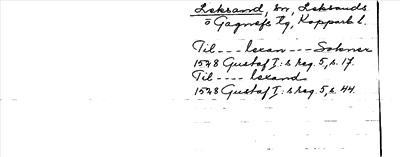 Leksand, sn, Leksands
o Gagnefs tg, Kopparb l.
Til --- lexan --- Sokner
1548 Gustaf I:s Reg. 5, s. 17.
Til ---- lexand
1548 Gustaf I:s Reg. 5, s. 44.